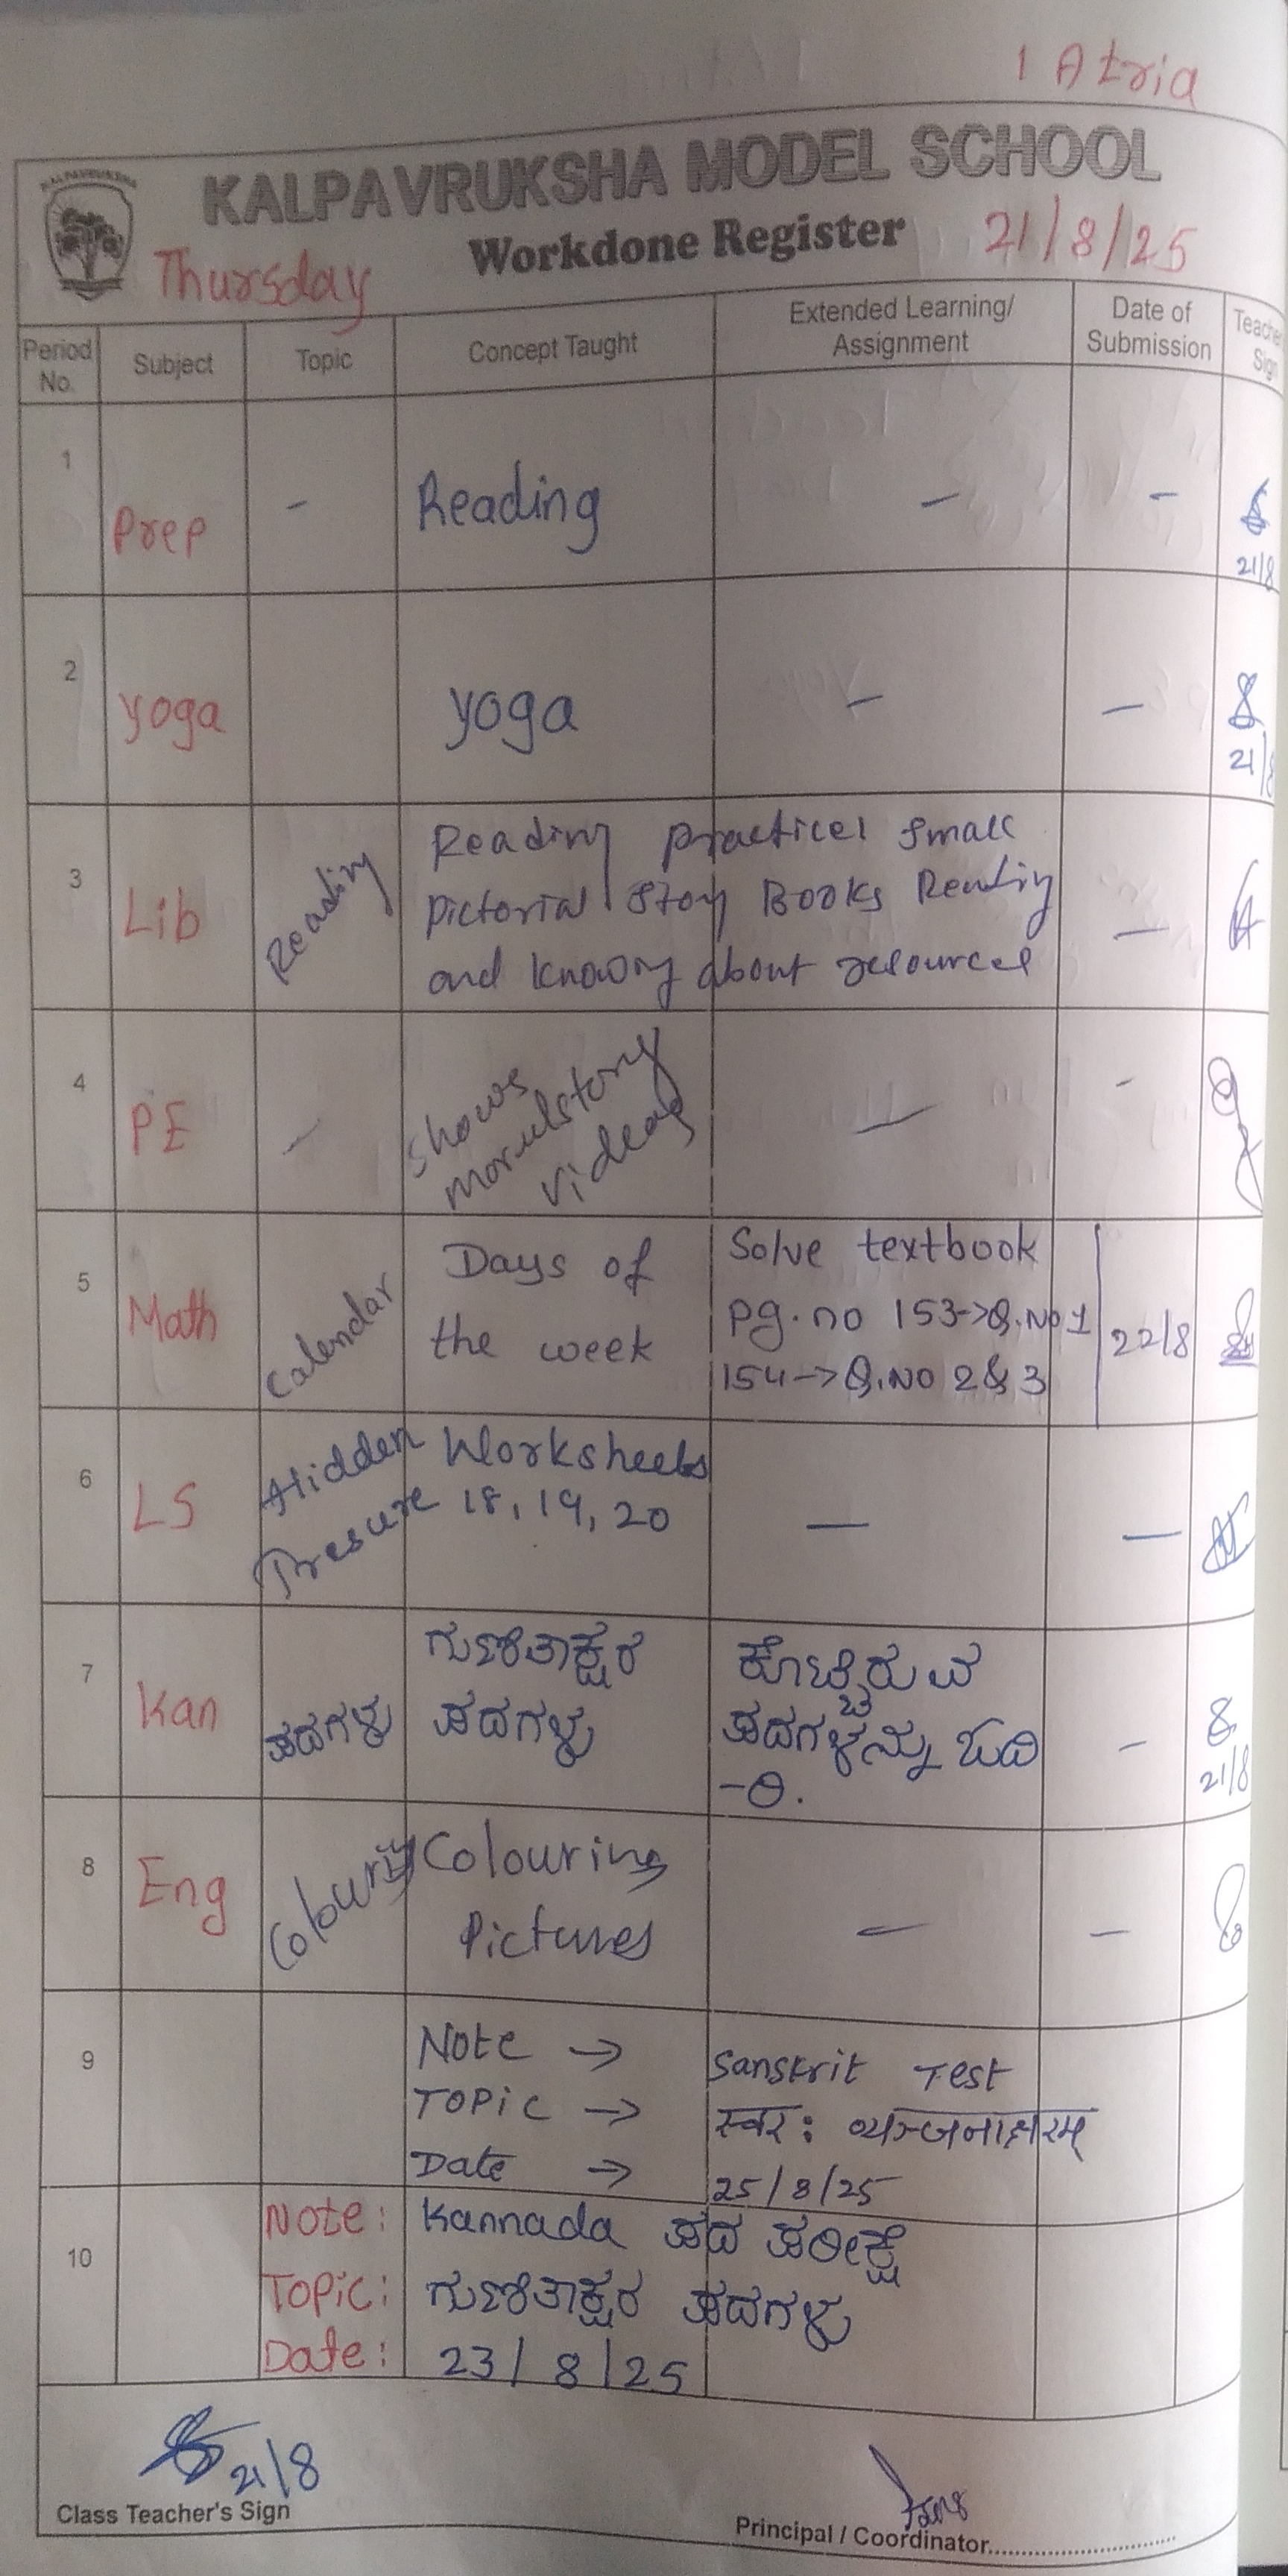 1 Atria
KALPAVRUKSHA
KALPAVRUKSHA MODEL SCHOOL
Workdone Register
Thursday
21/8/25
Period No.
Subject
Topic
Concept Taught
Extended Learning/ Assignment
Date of Submission
Teacher Sign
1
Prep
-
Reading
-
-
21/8
2
yoga
yoga
-
-
21/8
3
Lib
Reading
Reading practices small
pictorial story Books Reading
and knowing about resources
-
4
PE
-
shows
moralstory
videos
-
-
5
Math
Calendar
Days of
the week
Solve textbook
pg.no 153->Q.No 1
154->Q.NO 2&3
22/8
6
LS
Hidden
Tresure
Worksheets
18, 19, 20
-
-
7
Kan
ಪದಗಳು
ಗುಣಿತಾಕ್ಷರ
ಪದಗಳು
ಕೊಟ್ಟಿರುವ
ಪದಗಳನ್ನು ಓದಿ
-ರಿ.
-
21/8
8
Eng
Colouring
Colouring
Pictures
-
-
9
Note → Sanskrit Test
Topic → स्वर: व्यञ्जनाक्षरम्
Date → 25/8/25
10
Note: Kannada ಪದ ಪರೀಕ್ಷೆ
Topic: ಗುಣಿತಾಕ್ಷರ ಪದಗಳು
Date: 23/8/25
21/8
Class Teacher's Sign
Principal / Coordinator